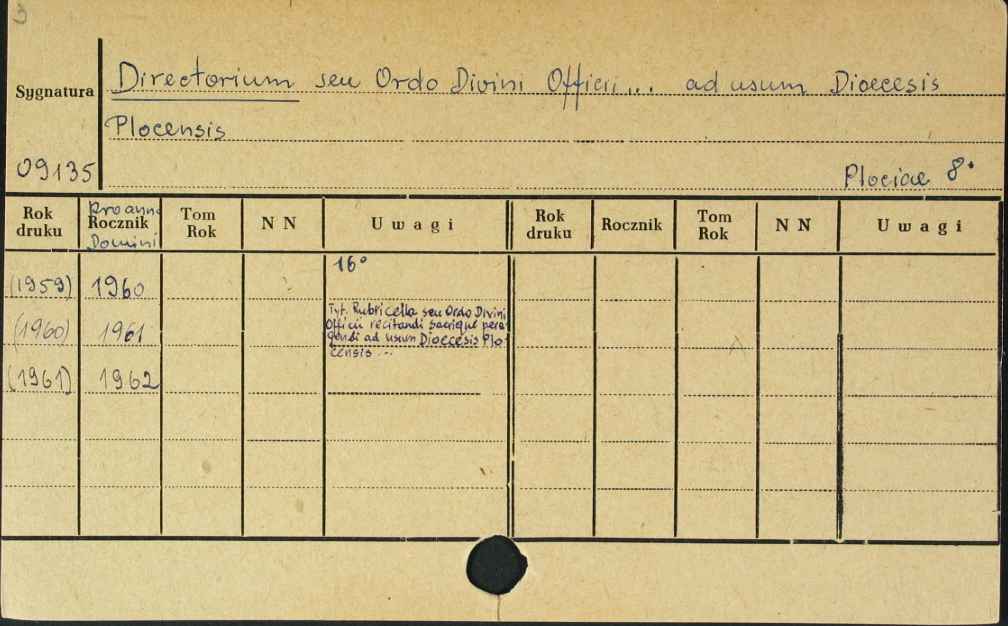 3
Directorium seu Ordo Divini Officii... ad usum Dioecesis
Sygnatura
Plocensis
09135
Plociae 8°
Rok druku
Pro anno
Rocznik
Domini
Tom Rok
N N
Uwagi
Rok druku
Rocznik
Tom Rok
N N
Uwagi
16°
(1959) 1960
Tyt. Rubricella seu Ordo Divini
Officii recitandi sacrique pera-
gendi ad usum Dioecesis Plo-
censis ...
(1960) 1961
(1961) 1962